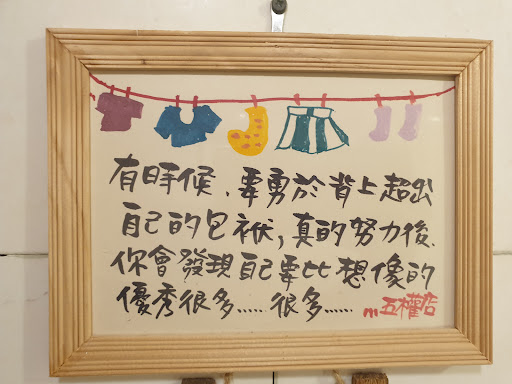 有時候、要勇於背上超出
自己的包袱,真的努力後、
你會發現自己要比想像的
優秀很多..... 很多......
五權店